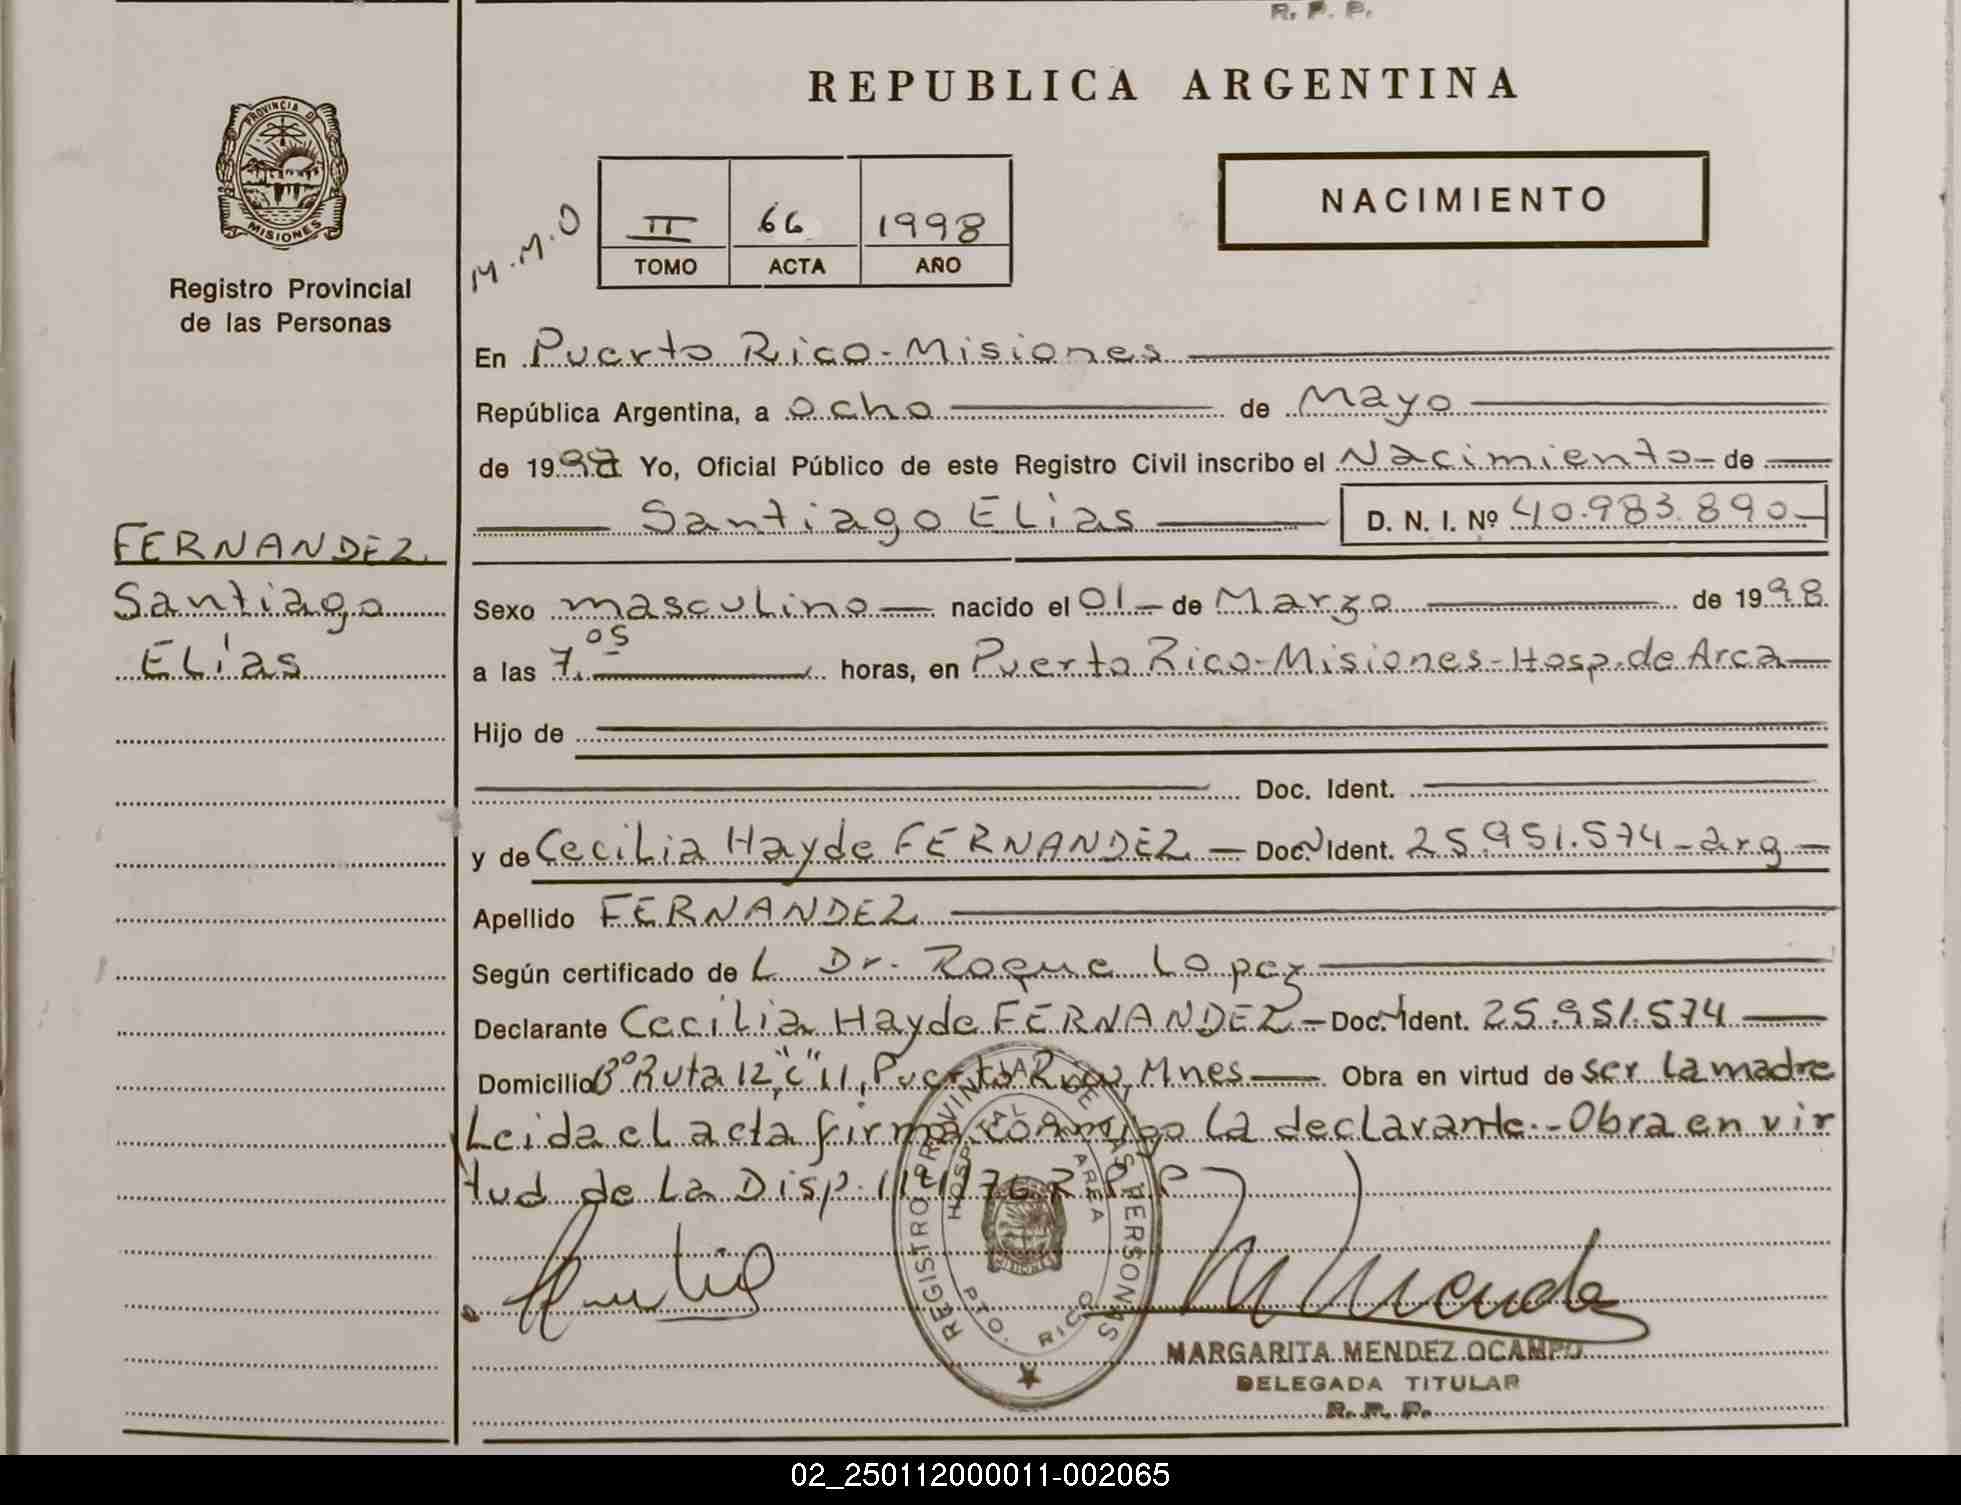 R. P. P.
REPUBLICA ARGENTINA
PROVINCIA DE
MISIONES
Registro Provincial
de las Personas
M.M.O
II 66 1998
TOMO ACTA AÑO
NACIMIENTO
En Puerto Rico-Misiones
República Argentina, a ocho de Mayo
de 1998 Yo, Oficial Público de este Registro Civil inscribo el Nacimiento de
Santiago ELias D. N. I. Nº 40.983.890
FERNANDEZ
Santiago
ELías
Sexo mascuLino nacido el 01 de Marzo de 1998
a las 7.05 horas, en Puerto Rico-Misiones-Hosp. de Area
Hijo de
Doc. Ident.
y de CeciLia Hayde FERNANDEZ - Doc. Ident. 25.951.574-arg
Apellido FERNANDEZ
Según certificado de L Dr. Roque Lopez
Declarante CeciLia Hayde FERNANDEZ - Doc. Ident. 25.951.574
Domicilio Bº Ruta 12, "C" 11, Puerto Rico, Mnes Obra en virtud de ser La madre
Leida eL acta firma conmigo La decLarante.-Obra en vir
tud de La Disp. 76 R.P.P
REGISTRO PROVINCIAL DE LAS PERSONAS
HOSPITAL DE AREA
PTO. RICO
MISIONES
MARGARITA MENDEZ OCAMPO
DELEGADA TITULAR
R. P. P.
02_250112000011-002065